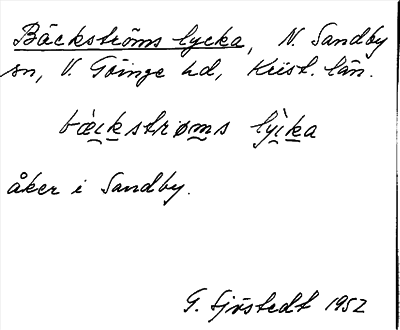 Bäckströms lycka, N. Sandby
sn, V. Göinge hd, Krist. län.
bæ̀ı̯k̲strøm̲s lỳı̯k̲a
åker i Sandby.
G. Sjöstedt 1952